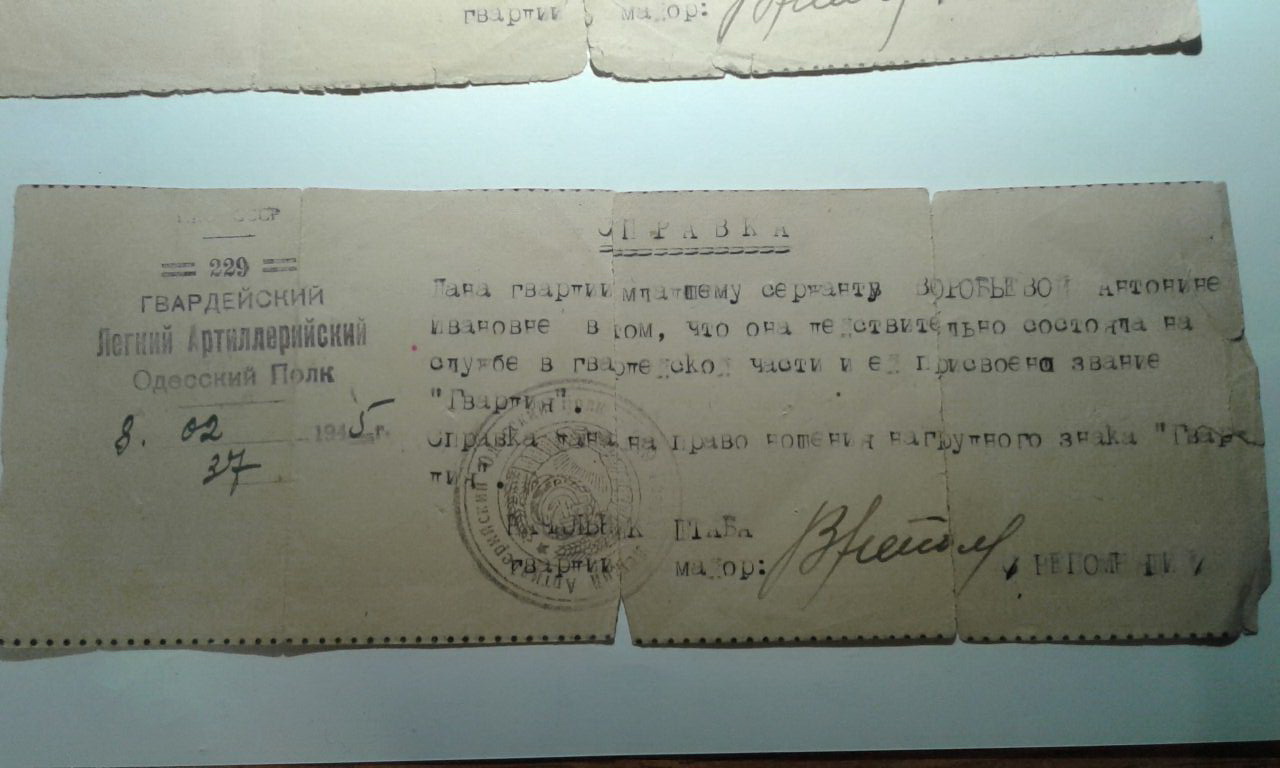 гвардии майор:
СССР
229
ГВАРДЕЙСКИЙ
Легкий Артиллерийский
Одесский Полк
8. 02 1945г.
37
СПРАВКА
Дана гвардии младшему сержанту ВОРОБЬЕВОЙ Антонине
Ивановне в том, что она действительно состояла на
службе в гвардейской части и ей присвоено звание
"Гвардия".
Справка дана на право ношения нагрудного знака "Гвар-
дия".
НАЧАЛЬНИК ШТАБА
гвардии майор: